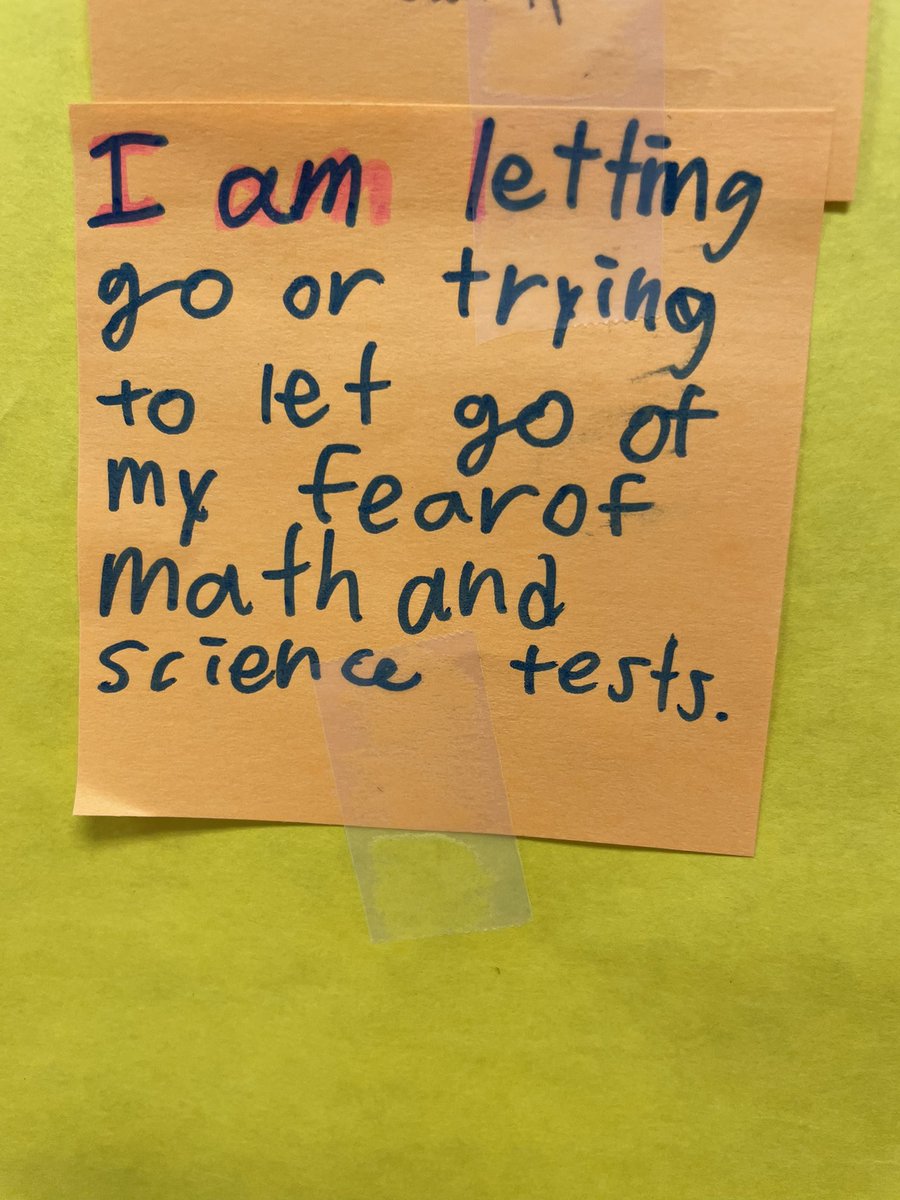 I am letting
go or trying
to let go of
my fear of
math and
science tests.